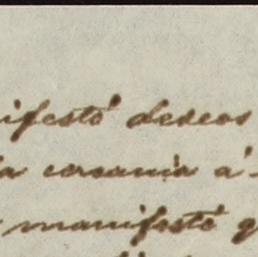 ifestó deseos
a cercania á
manifestó q